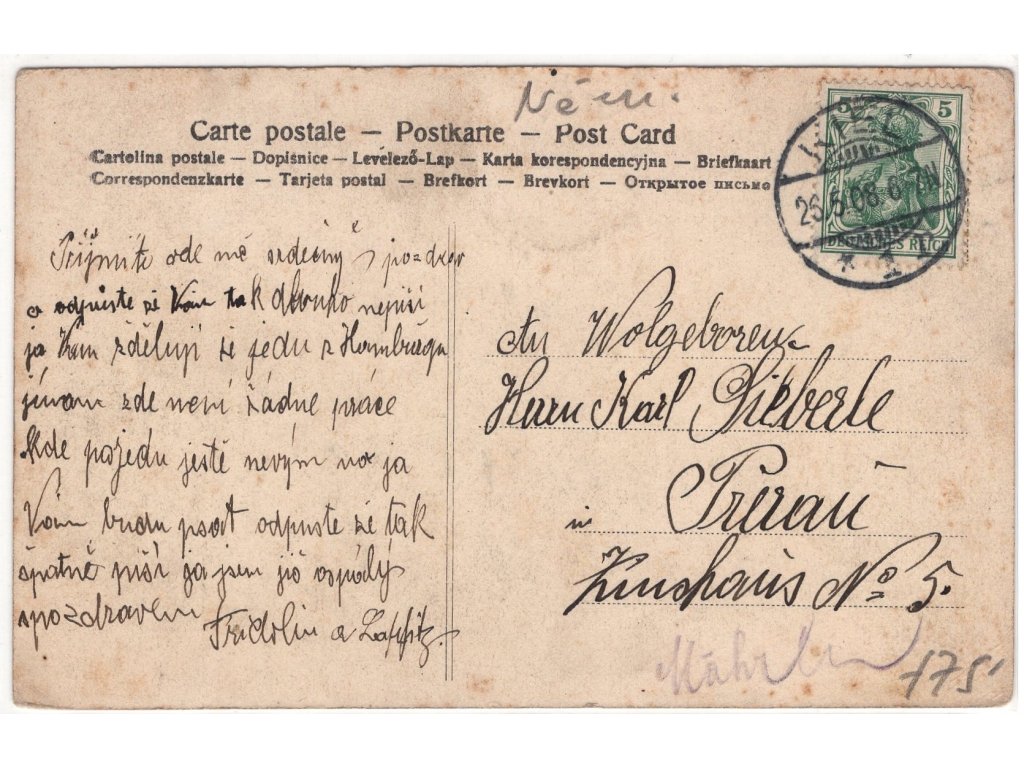 Něm.
Carte postale — Postkarte — Post Card
Cartolina postale — Dopisnice — Levelező-Lap — Karta korespondencyjna — Briefkaart
Correspondenzkarte — Tarjeta postal — Brefkort — Brevkort — Открытое письмо
5 5
DEUTSCHES REICH
KIEL
26.5.08. 6-7N
* 1 *
Přijmíte ode mě srdečný pozdrav
a odpuste že Vám tak dlouho nepisi
ja Vám zděluji že jedu z Hamburgu
jinam zde není žádné práce
kde pojedu jestě nevým no ja
Vám budu psat odpuste že tak
špatně piši ja jsem jiš ospalý
s pozdravem Fridolin a
An Wolgeboren
Herrn Karl Sieberle
in Prerau
Zinshaus No 5.
Mähren
175